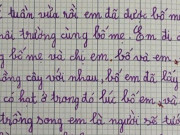 tuần vừa rồi em đã được bố mẹ
trường cùng bố mẹ. Em đi
bố mẹ và chị em. bố và em
cây với nhau, bố em đã lấy
có hạt ở trong đó lúc bố em và
trồng song em là người